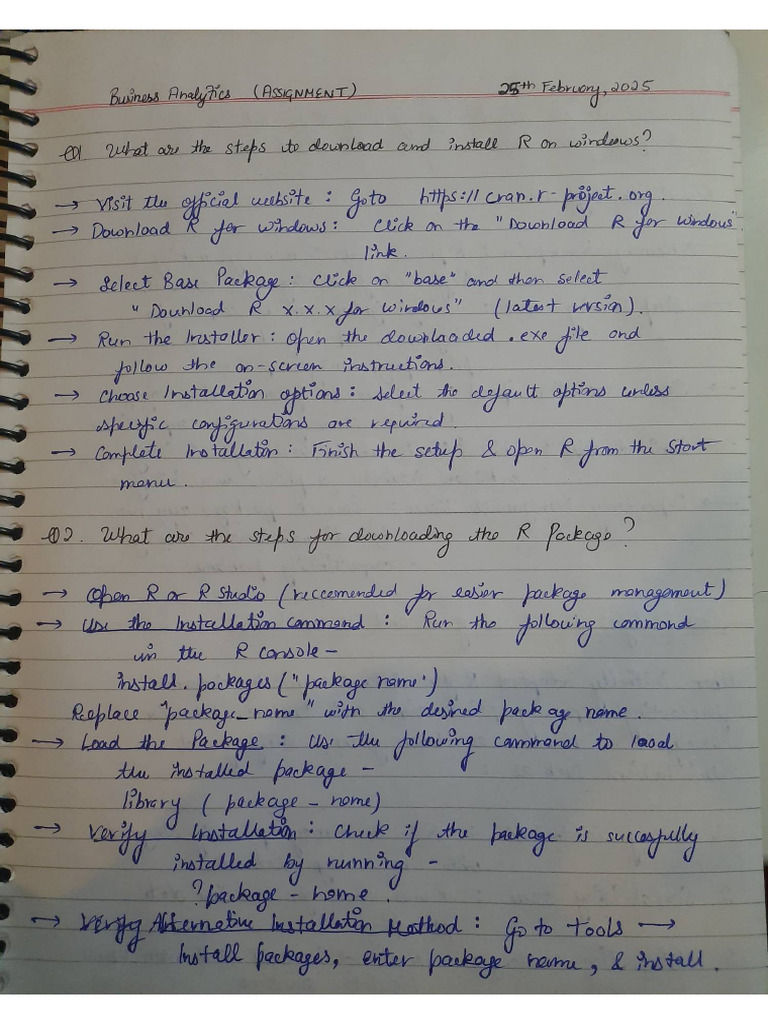 Business Analytics (ASSIGNMENT) 25th February, 2025
Q1 What are the steps to download and install R on windows?
→ Visit the official website : Goto https://cran.r-project.org.
→ Download R for windows: Click on the "Download R for windows"
link.
→ Select Base Package: Click on "base" and then select
"Download R x.x.x for windows" (latest version).
→ Run the Installer : Open the downloaded .exe file and
follow the on-screen instructions.
→ Choose Installation options : Select the default options unless
specific configurations are required.
→ Complete Installation : Finish the setup & open R from the Start
menu.
Q2. What are the steps for downloading the R Package?
→ Open R or R Studio (reccomended for easier package management)
→ Use the Installation command : Run the following command
in the R console –
install.packages ("package name")
Replace "package_name" with the desired package name.
→ Load the Package : Use the following command to load
the installed package –
library ( package – name)
→ Verify Installation : Check if the package is succesfully
installed by running –
?package – name.
→ Verify Alternative Installation Method : Go to Tools →
Install packages, enter package name, & install.